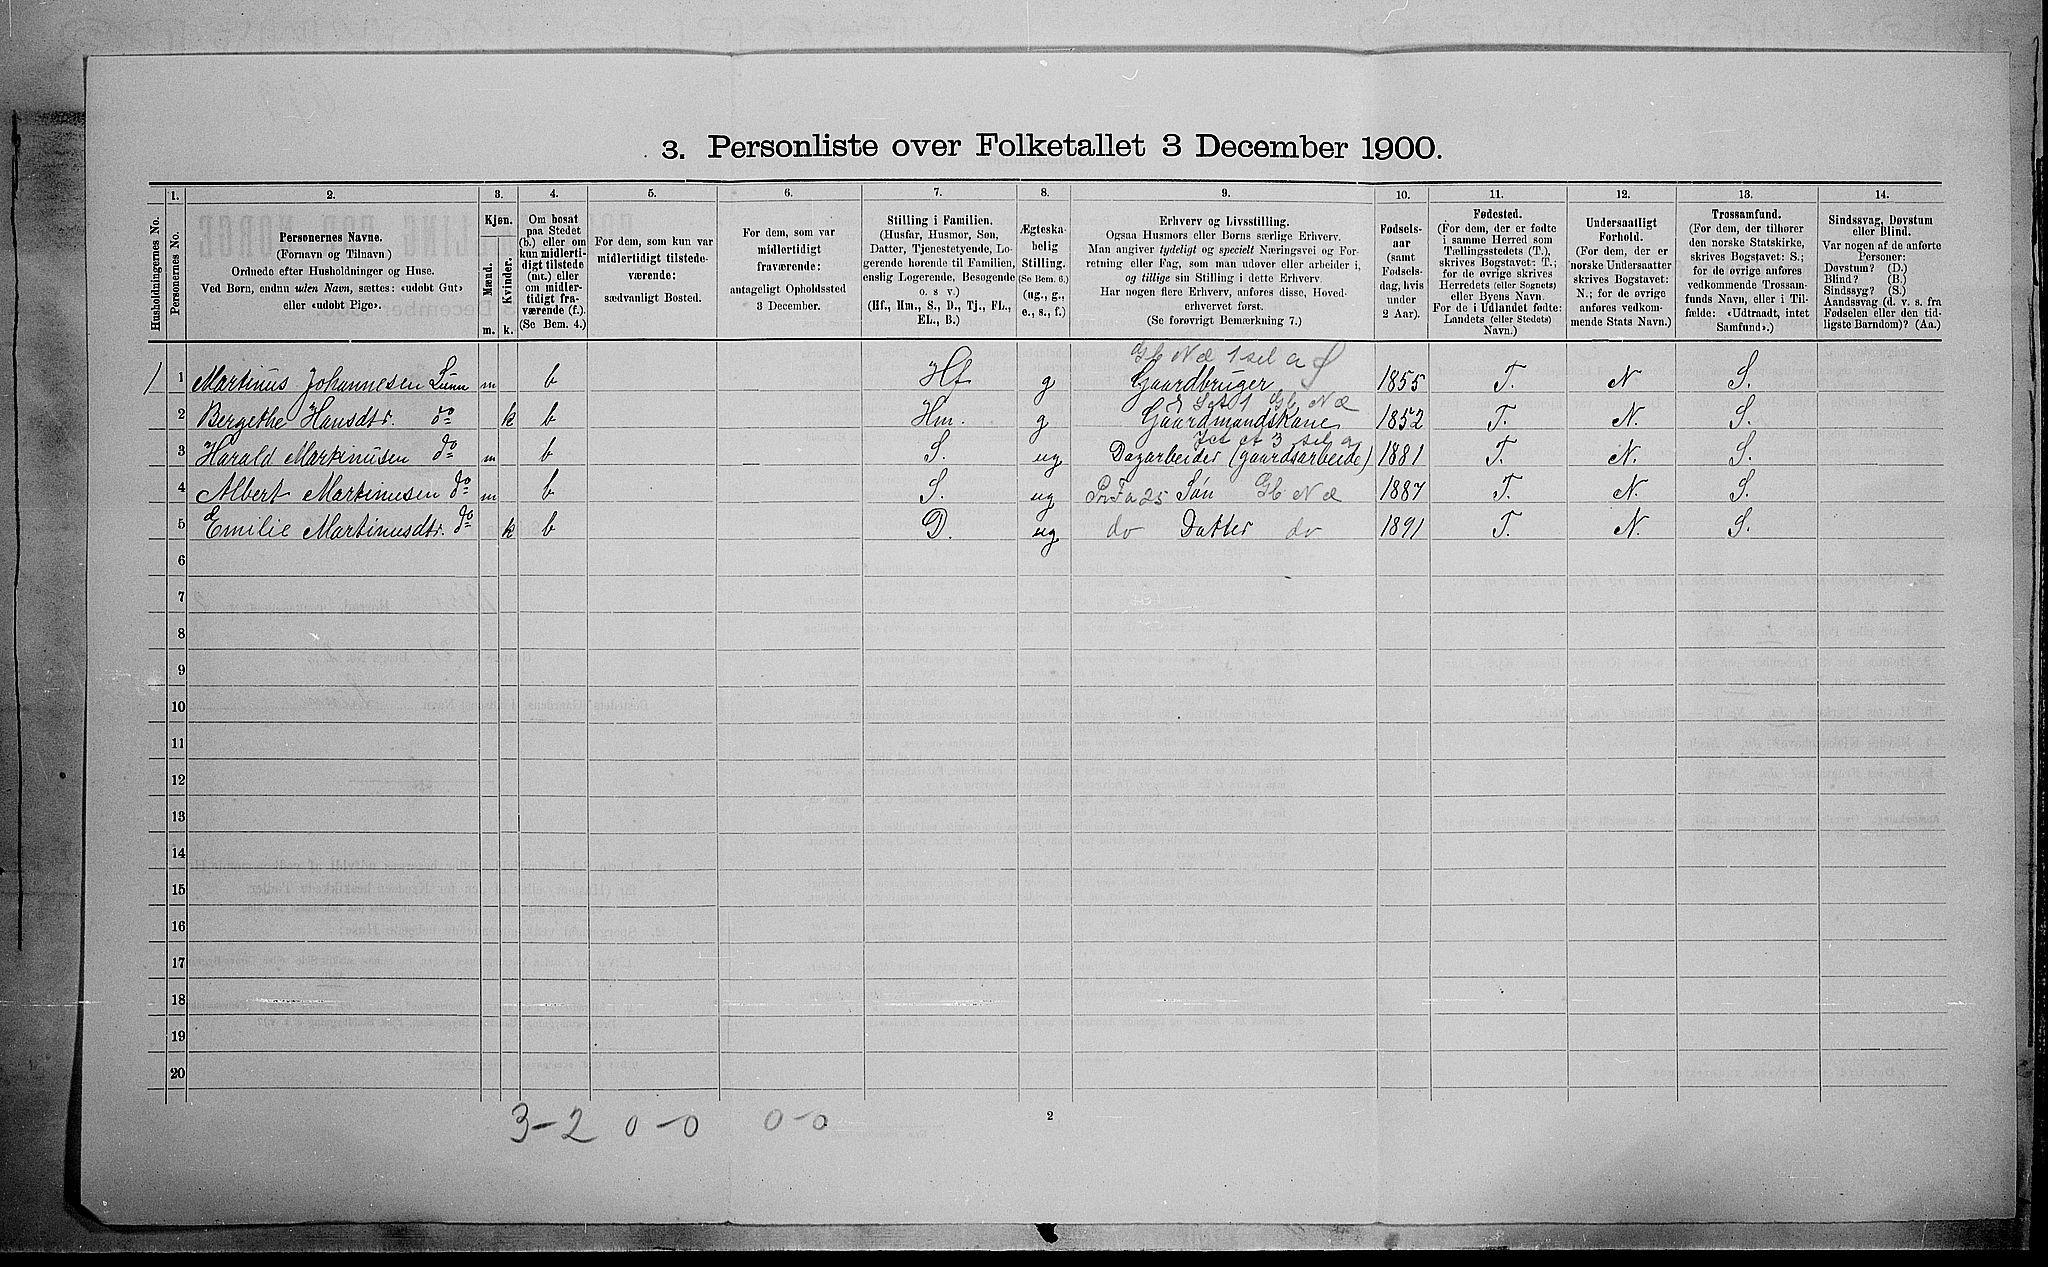 3. Personliste over Folketallet 3 December 1900.
1. 2. 3. 4. 5. 6. 7. 8. 9. 10. 11. 12. 13. 14.
Husholdningernes No.
Personernes No.
Personernes Navne.
(Fornavn og Tilnavn)
Ordnede efter Husholdninger og Huse.
Ved Børn, endnu uden Navn, sættes: «udøbt Gut»
eller «udøbt Pige».
Kjøn.
Mænd.
Kvinder.
m. k.
Om bosat
paa Stedet
(b.) eller om
kun midlerti-
digt tilstede
(mt.) eller
om midler-
tidigt fra-
værende (f.).
(Se Bem. 4.)
For dem, som kun var
midlertidigt tilstede-
værende:
sædvanligt Bosted.
For dem, som var
midlertidigt
fraværende:
antageligt Opholdssted
3 December.
Stilling i Familien.
(Husfar, Husmor, Søn,
Datter, Tjenestetyende, Lo-
gerende hørende til Familien,
enslig Logerende, Besøgende
o. s. v.)
(Hf., Hm., S., D., Tj., FL.,
EL., B.)
Ægteska-
belig
Stilling.
(Se Bem. 6.)
(ug., g.,
e., s., f.)
Erhverv og Livsstilling.
Ogsaa Husmors eller Børns særlige Erhverv.
Man angiver tydeligt og specielt Næringsvei og For-
retning eller Fag, som man udøver eller arbeider i,
og tillige sin Stilling i dette Erhverv.
Har nogen flere Erhverv, anføres disse, Hoved-
erhvervet først.
(Se forøvrigt Bemærkning 7.)
Fødsels-
aar
(samt
Fødsels-
dag, hvis
under
2 Aar).
Fødested.
(For dem, der er fødte
i samme Herred som
Tællingsstedets (T.),
skrives Bogstavet: T.;
for de øvrige skrives
Herredets (eller Sognets)
eller Byens Navn.
For de i Udlandet fødte:
Landets (eller Stedets)
Navn.)
Undersaatligt
Forhold.
(For dem, der er
norske Undersaatter
skrives Bogstavet:
N.; for de øvrige
anføres vedkom-
mende Stats Navn.)
Trossamfund.
(For dem, der tilhører
den norske Statskirke,
skrives Bogstavet: S.;
for de øvrige anføres
vedkommende Trossam-
funds Navn, eller i Til-
fælde: «Udtraadt, intet
Samfund».)
Sindssvag, Døvstum
eller Blind.
Var nogen af de anførte
Personer:
Døvstum? (D.)
Blind? (B.)
Sindssyg? (S.)
Aandssvag (d. v. s. fra
Fødselen eller den tid-
ligste Barndom)? (Aa.)
Gb Næ 1 sel a
1 1 Martinus Johannesen Lunn m b Hf g Gaardbruger 1855 T. N S.
Gb Næ
2 Bergethe Hansdtr. do k b Hm. g Gaardmandskone 1852 T. N. S.
3 Harald Martinusen do m b S. ug Dagarbeider (gaardsarbeide) 1881 T. N. S.
4 Albert Martinusen do m b S. ug Søn Gb Næ 1887 T. N. S.
5 Emilie Martinusdtr. do k b D. ug do Datter do 1891 T. N. S.
6
7
8
9
10
11
12
13
14
15
16
17
18
19
20
3-2 0-0 0-0
2